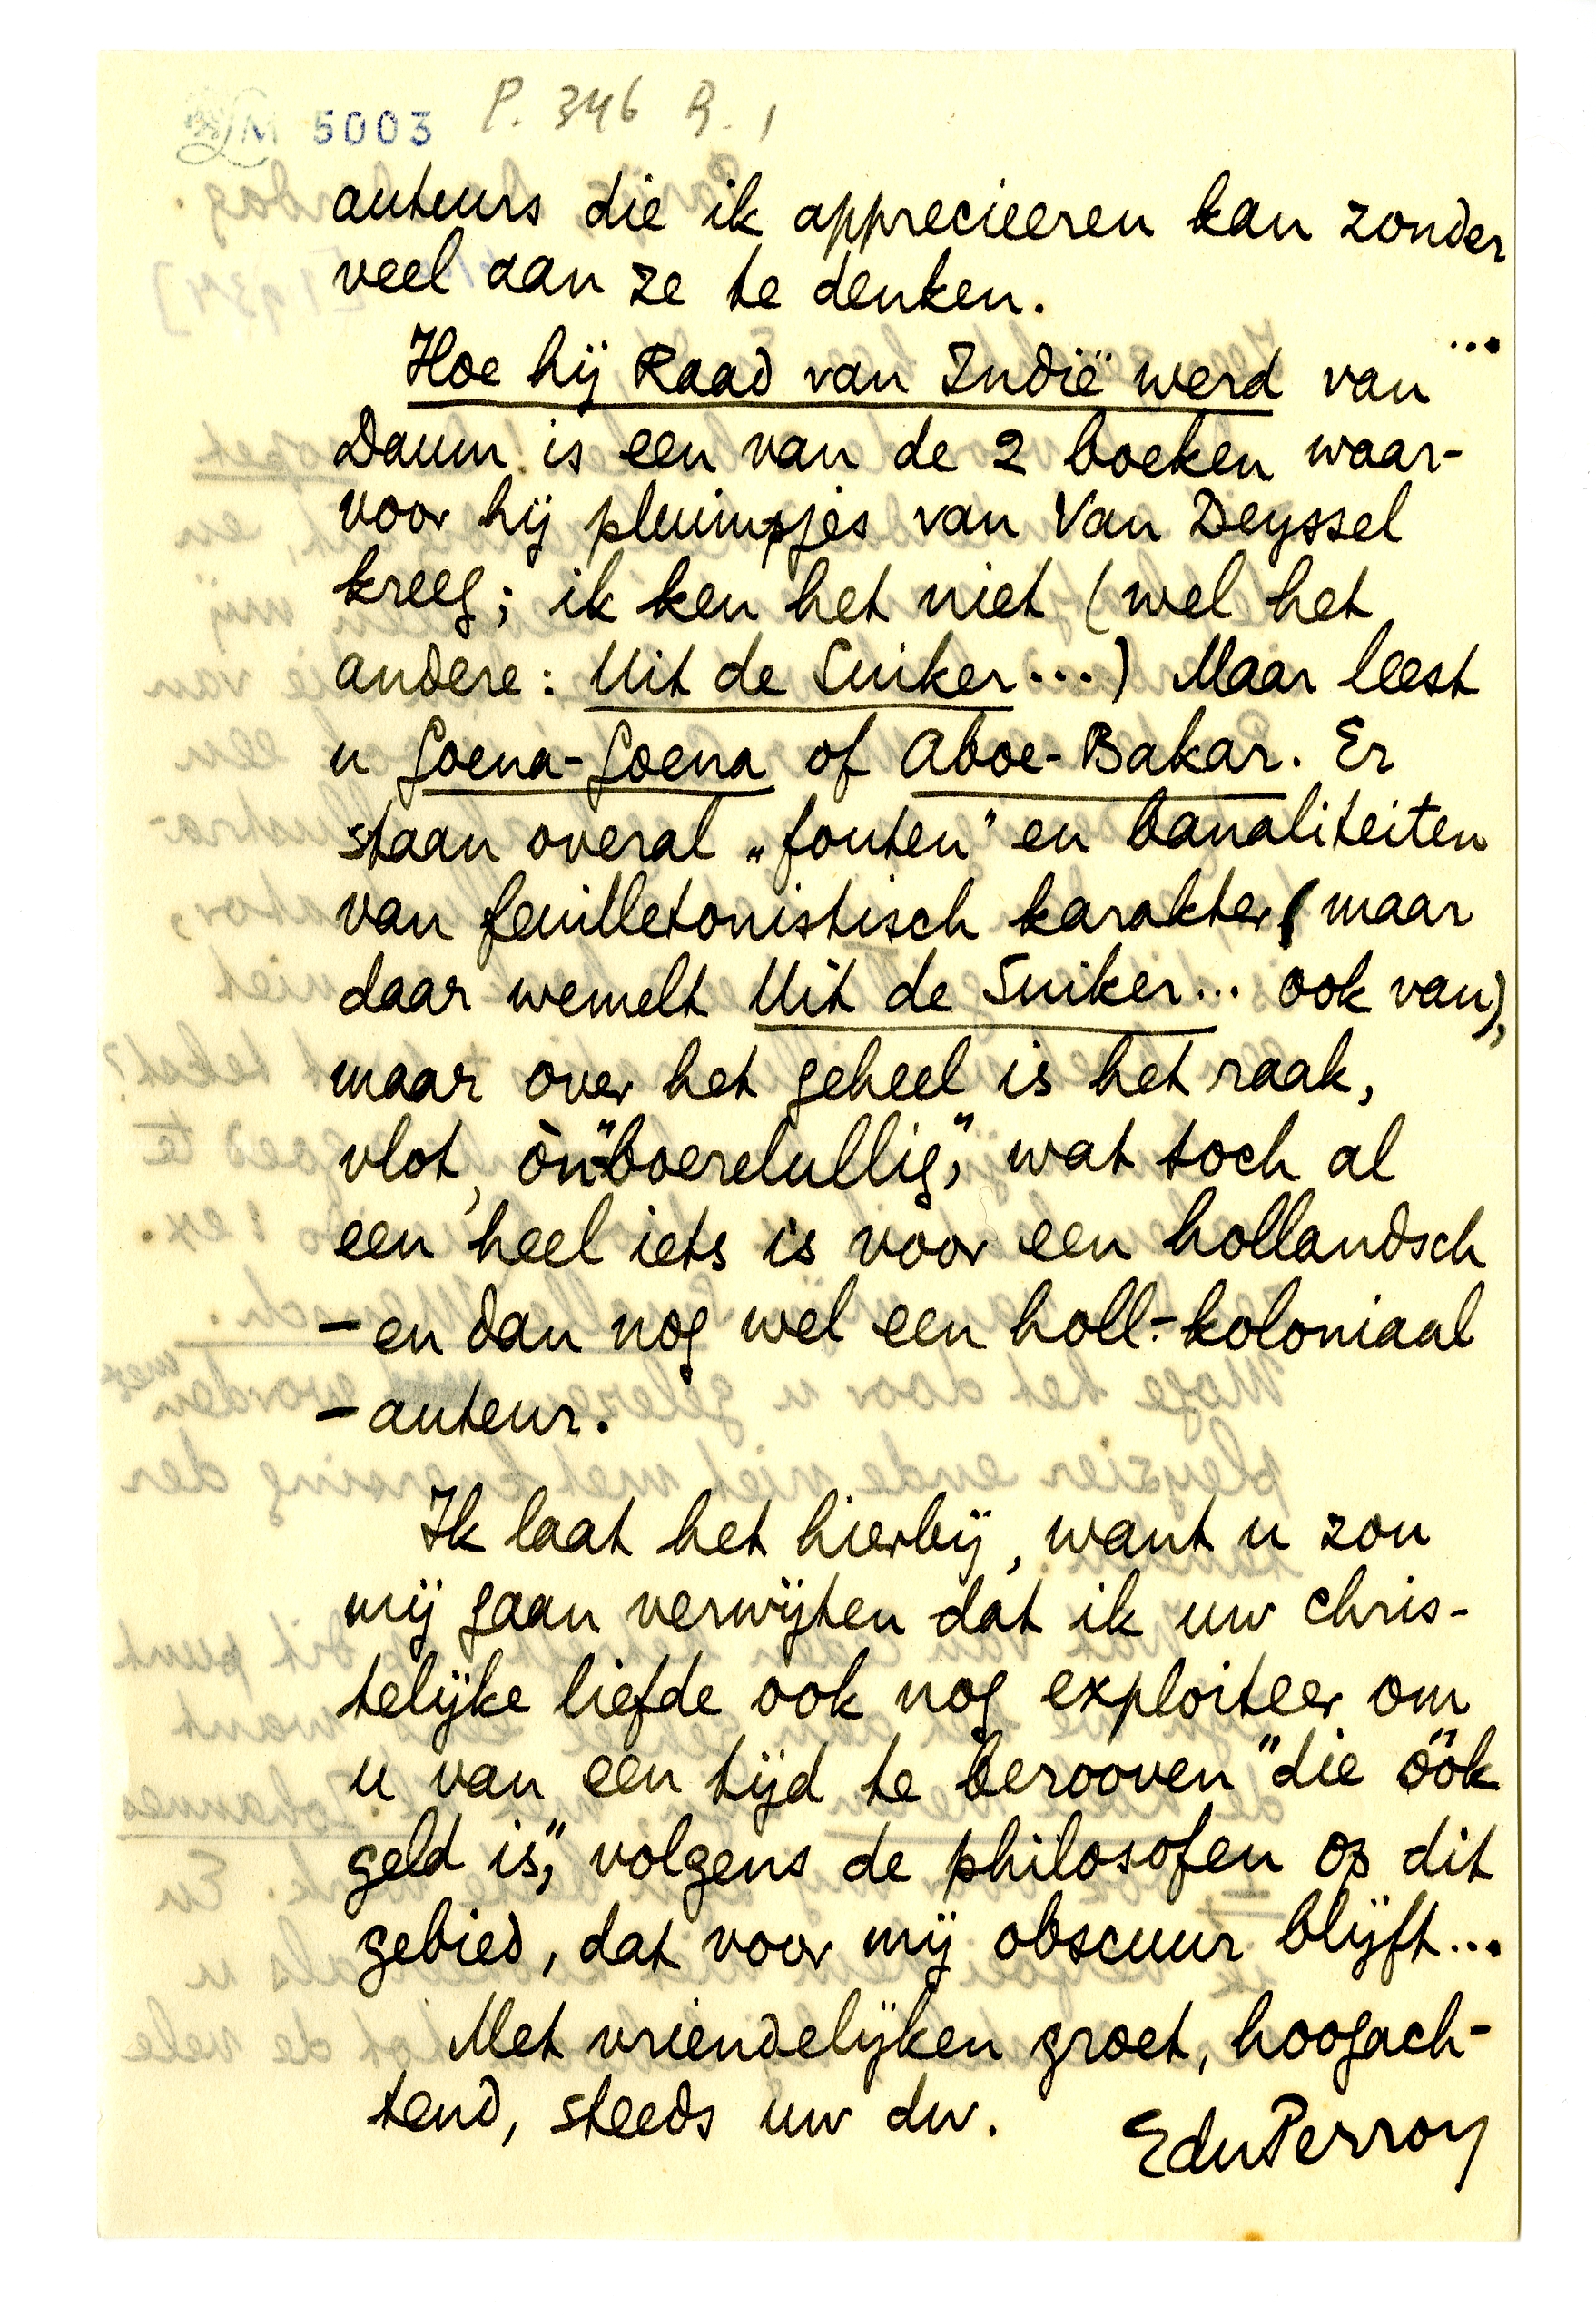 LM 5003 P. 346 B. 1
auteurs die ik apprecieeren kan zonder
veel aan ze te denken.
Hoe hij Raad van Indië werd van ...
Daum is een van de 2 boeken waar-
voor hij pluimpjes van Van Deyssel
kreeg; ik ken het niet (wel het
andere: Uit de Suiker...) Maar leest
u Goena-Goena of Aboe-Bakar. Er
staan overal „fouten” en banaliteiten
van feuilletonistisch karakter (maar
daar wemelt Uit de Suiker... ook van),
maar over het geheel is het raak,
vlot, òn-“boerelullig”, wat toch al
een heel iets is voor een hollandsch
– en dan nog wel een holl.-koloniaal
– auteur.
Ik laat het hierbij, want u zou
mij gaan verwijten dat ik uw chris-
telijke liefde ook nog exploiteer om
u van een tijd te berooven “die óók
geld is”, volgens de philosofen op dit
gebied, dat voor mij obscuur blijft...
Met vriendelijken groet, hoogach-
tend, steeds uw dw.
EduPerron